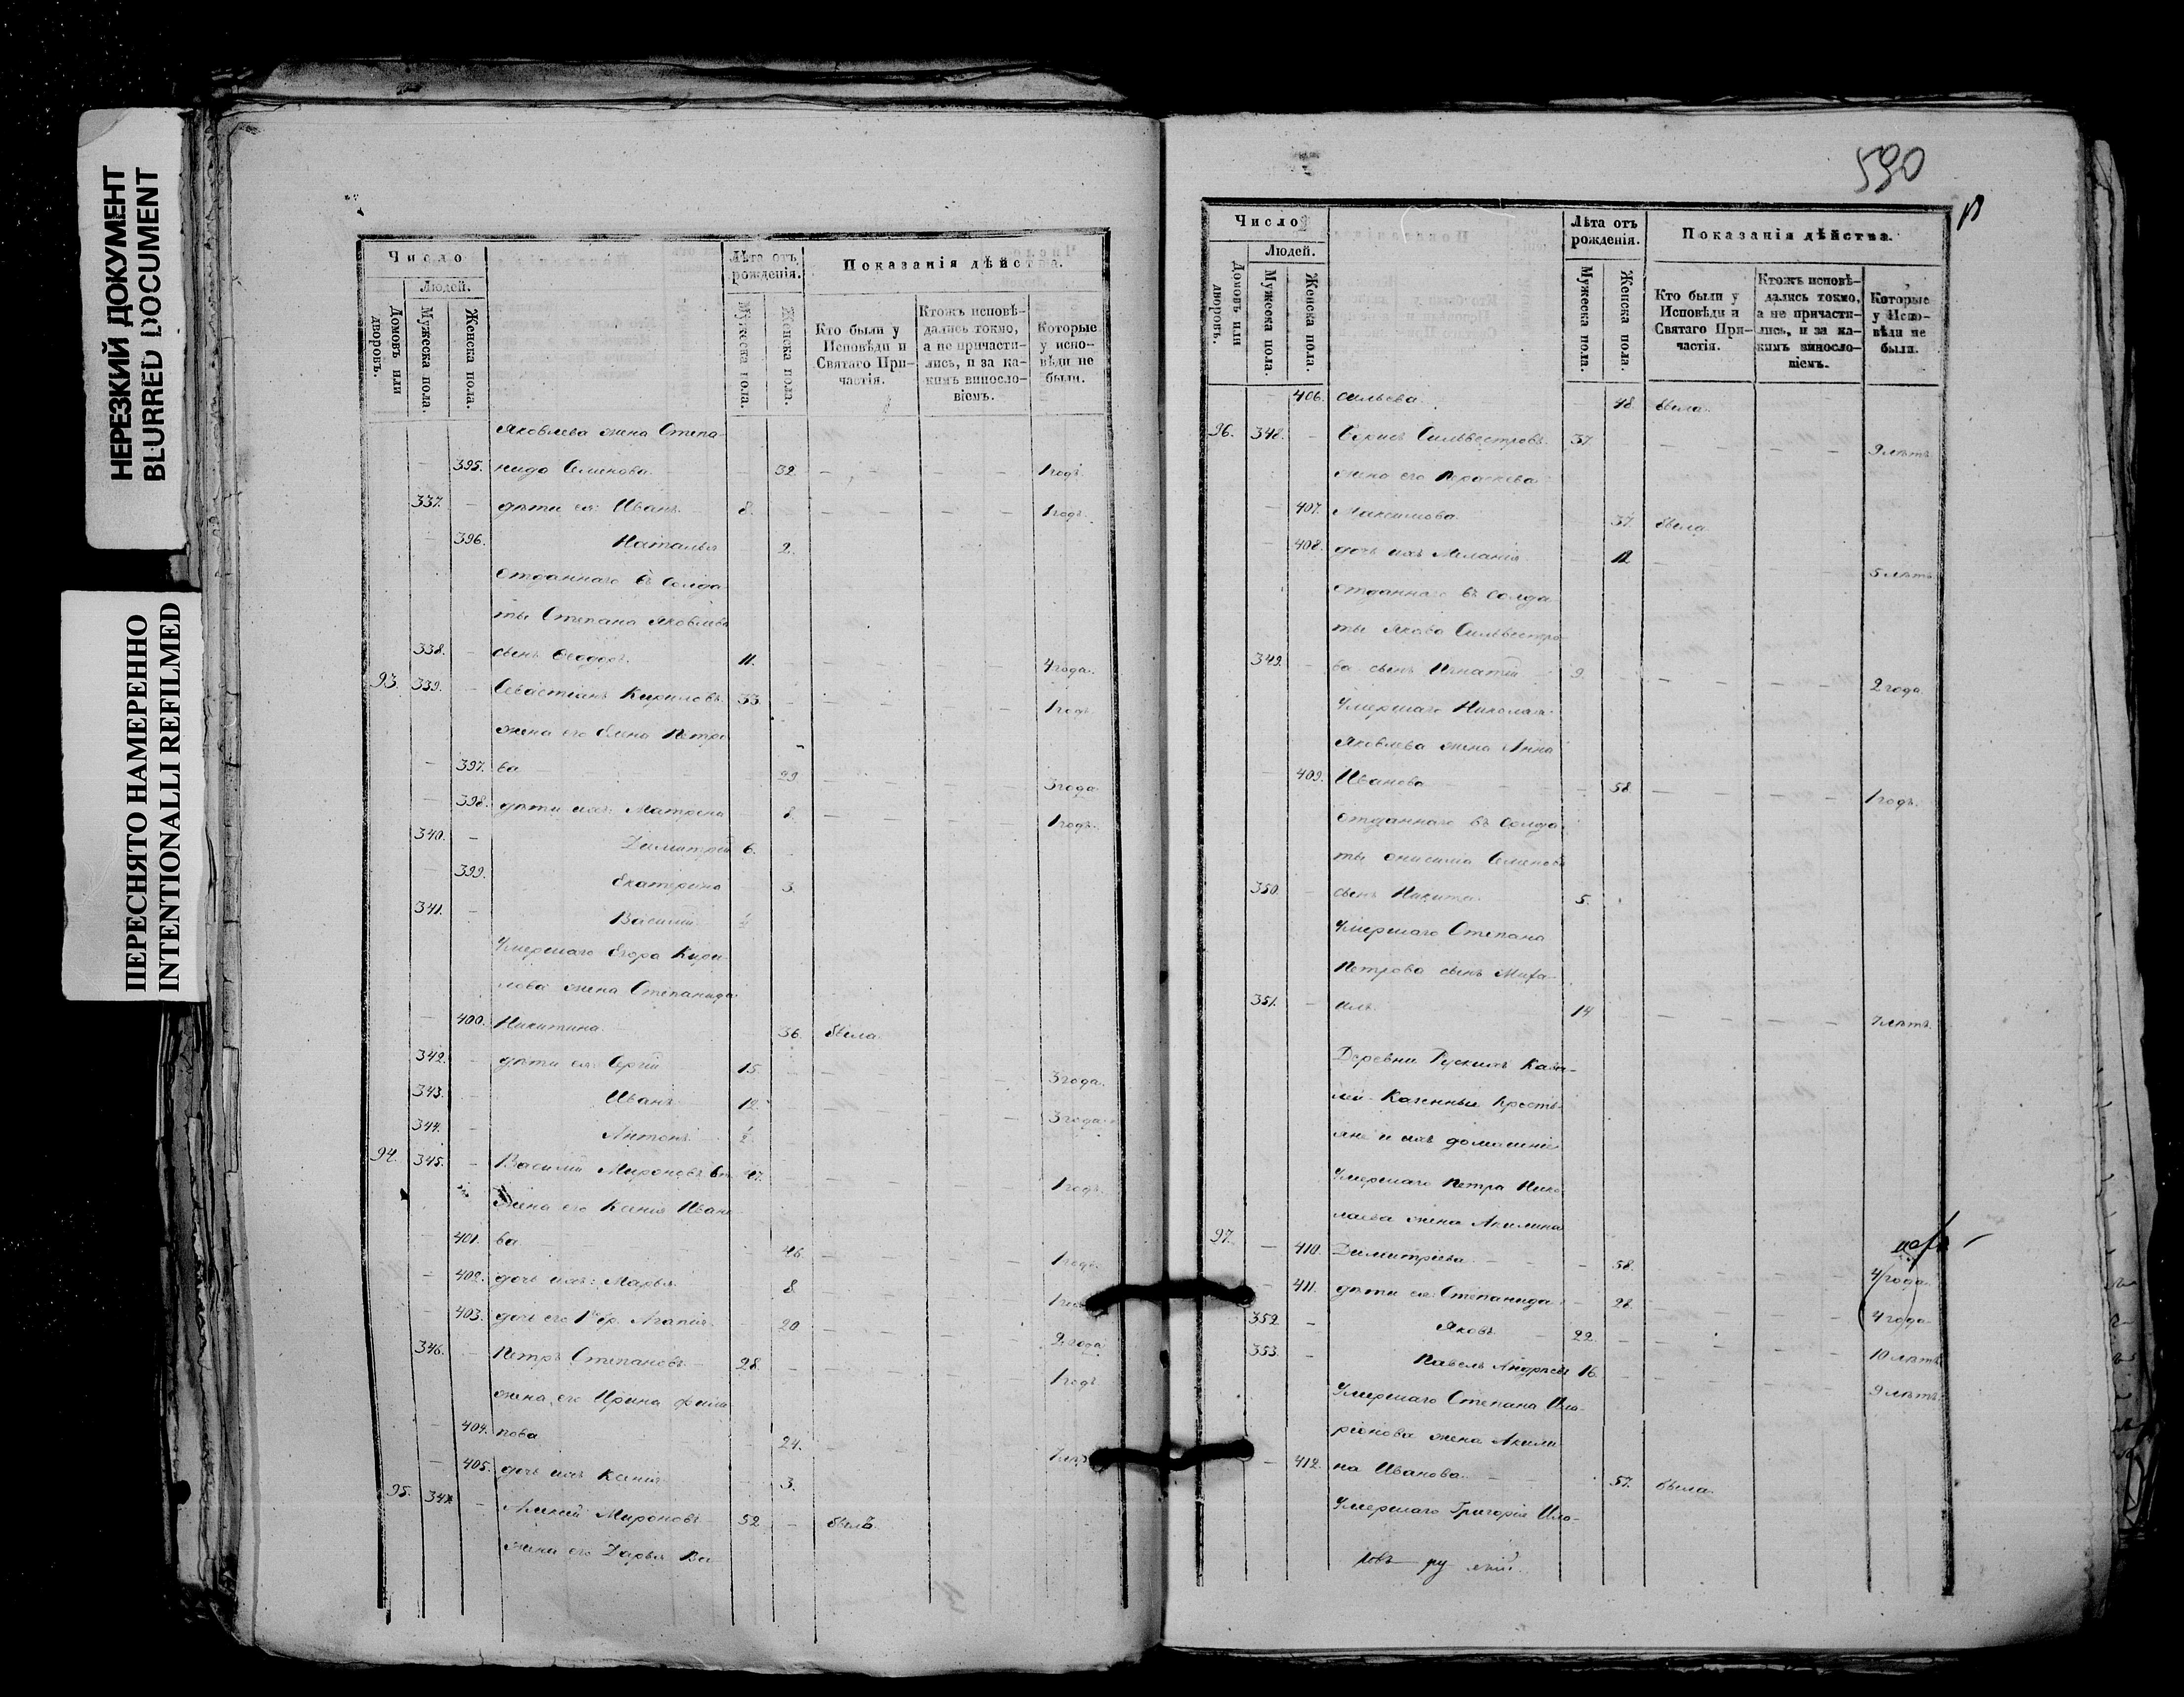 НЕРЕЗКИЙ ДОКУМЕНТ
BLURRED DOCUMENT
ПЕРЕСНЯТО НАМЕРЕННО
INTENTIONALLI REFILMED
Число
Людей.
Домовъ или дворовъ.
Мужеска пола.
Женска пола.
Лѣта отъ рожденія.
Мужеска пола.
Женска пола.
Показанія дѣйства.
Кто были у Исповѣди и Святаго Причастія.
Ктожъ исповѣдались токмо, а не причастились, и за какимъ винословіемъ.
Которые у исповѣди не были.
Яковлева жена Степа-
395. нида Семенова 32. 1 годъ.
337. дѣти ея: Иванъ 8. 1 годъ.
396. Наталья 2.
Отданнаго въ солда-
ты Степана Яковлева
338. сынъ Ѳеодоръ. 11. 4 года.
93. 339. Севастіанъ Кириловъ 33. 1 годъ.
жена его Елена Петро
397. ва 29 3 года
398. дѣти ихъ: Матрона 8. 1 годъ.
340. Димитрій 6.
399. Екатерина 3.
341. Василій ½
Умершаго Егора Кири-
лова жена Степанида
400. Никитина 36. была.
342. дѣти ея: Сергій 15. 3 года.
343. Иванъ 12. 3 года.
344. Антонъ ½.
94. 345. Василій Мироновъ 47. 1 годъ.
жена его Ксенія Ивано
401. ва 46. 1 годъ.
402. дочь ихъ: Марья 8
403. дочь его Агапія 20 2 года
346. Петръ Степановъ 28. 1 годъ
жена его Ирина Фили
404. пова 24.
405. дочь ихъ Ксенія 3.
95. 347. Мироновъ 52 былъ.
жена его Дарья Ва
590
Число
Людей.
Домовъ или дворовъ.
Мужеска пола.
Женска пола.
Лѣта отъ рожденія.
Мужеска пола.
Женска пола.
Показанія дѣйства.
Кто были у Исповѣди и Святаго Причастія.
Ктожъ исповѣдались токмо, а не причастились, и за какимъ винословіемъ.
Которые у Исповѣди не были.
406. сильева 48. была.
96. 348. Борисъ Сильвестровъ 37. 9 лѣтъ
жена его Параскева
407. Максимова 37. была
408. дочь ихъ Меланія 12 5 лѣтъ
отданнаго въ солда
ты Якова Сильвестро
349. ва сынъ Игнатій 9 2 года
Умершаго Николая
Яковлева жена Анна
409. Иванова 58 1 годъ.
отданнаго въ солда
ты Онисима Семенова
350. сынъ Никита 5.
Умершаго Степана
Петрова сынъ Миха-
351. илъ 14 7 лѣтъ.
Деревни Рускихъ
Казенные Кресть-
яне и ихъ домашніе
Умершаго Петра Нико
лаева жена Акилина
97. 410. Димитріева 58. 4 года
411. дѣти ея: Степанида 28. 4 года
352 Яковъ 22. 10 лѣтъ
353. Павелъ Андреевъ 16. 9 лѣтъ
Умершаго Степана Ила-
ріонова жена Акили
412. на Иванова 57. была.
Умершаго Григорія Ила-